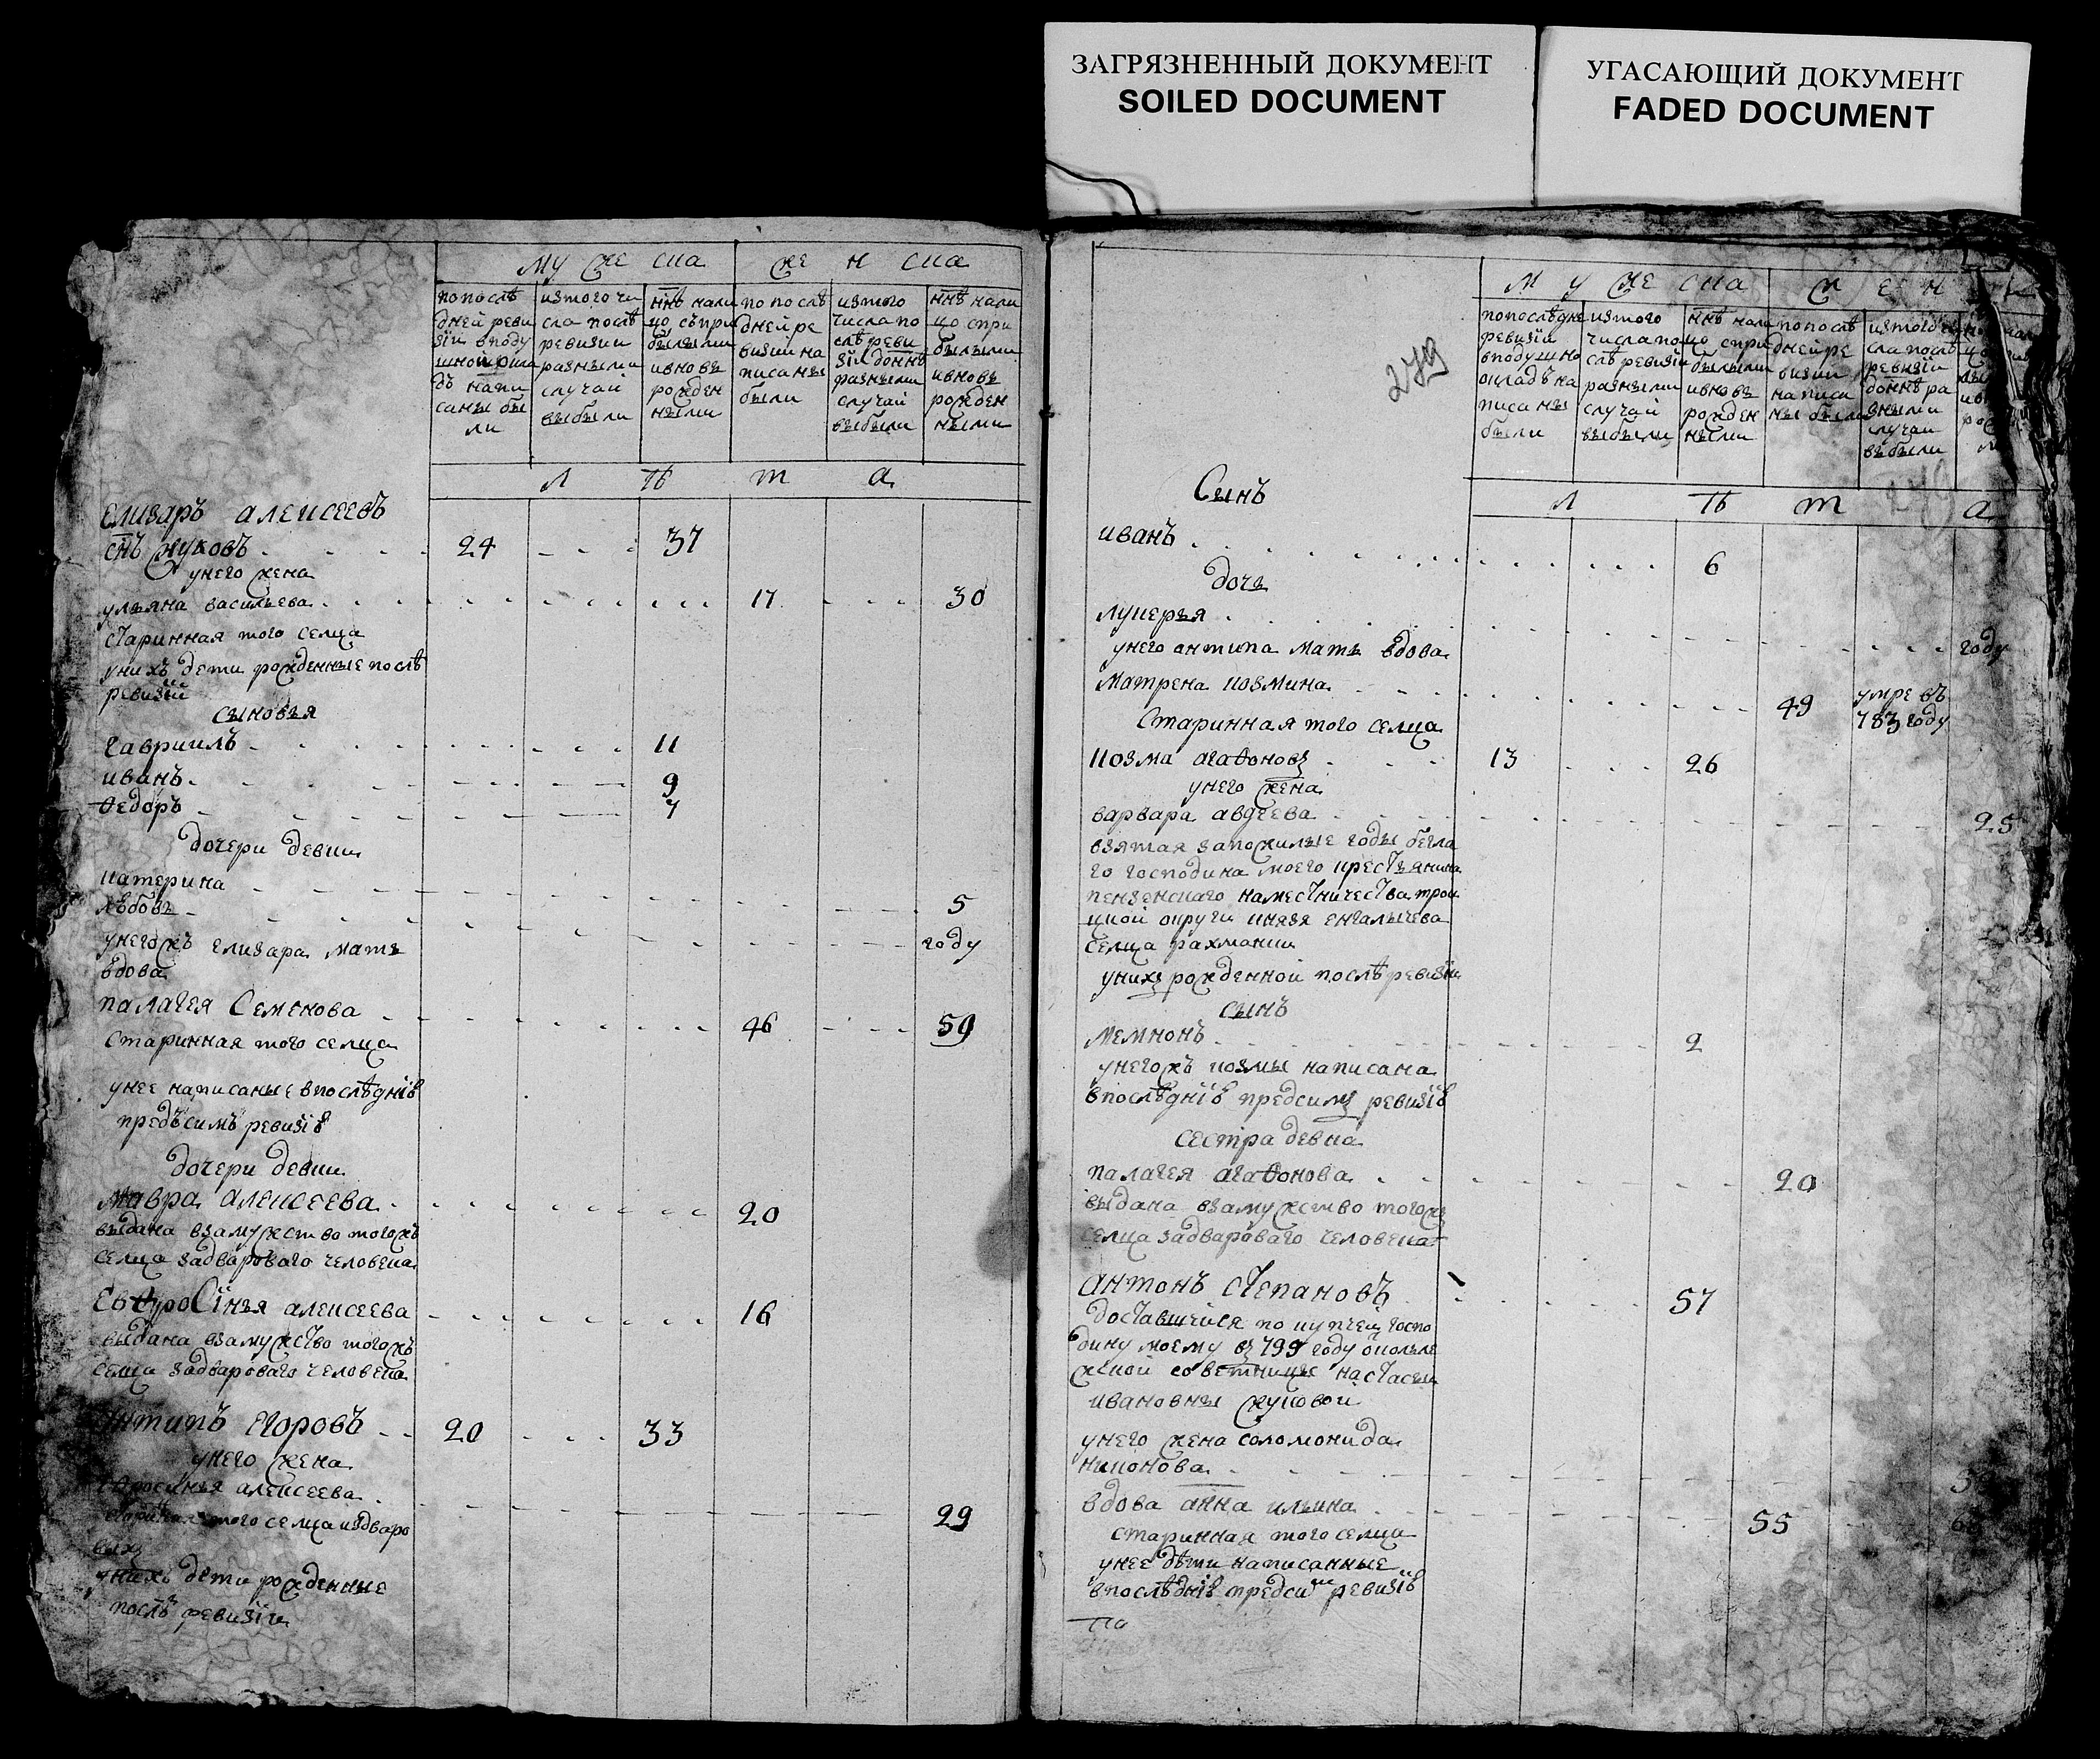 ЗАГРЯЗНЕННЫЙ ДОКУМЕНТ
SOILED DOCUMENT
УГАСАЮЩИЙ ДОКУМЕНТ
FADED DOCUMENT
муже ска
жен ска
попослѣ
дней реви
зіи вподу
шной окла
дъ напи
саны бы
ли
изтого чи
сла послѣ
ревизии
разными
случаи
выбыли
ннѣ нали
цо съпри
былыми
ивновь
рожден
ными
попослѣ
дней ре
визии на
писаны
были
изтого
числа по
слѣ реви
зіи доннѣ
разными
случаи
выбыли
ннѣ нали
цо спри
былыми
ивновь
рожден
ными
л ѣ т а
Елизаръ алексеевъ
снъ жуковъ 24 37
унего жена
ульяна васильева 17 30
старинная того селца
унихъ дети рожденные послѣ
ревизіи
сыновья
гавриилъ 11
иванъ 9
ѳедоръ 7
дочери девки
катерина 5
любовь году
унегожъ елизара мать
вдова
палагея Семенова 46 59
старинная того селца
унее написаные впослѣдніѣ
предъсимъ ревизіѣ
дочери девки
Мавра алексеева 20
выдана взамужство тогожъ
селца задвороваго человека
Евѳросінья алексеева 16
выдана взамужство тогожъ
селца задвороваго человека
антипъ егоровъ 20 33
унего жена
алексеева 29
того селца издваро
выхъ
унихъ дети рожденные
послѣ ревизіи
279
муже ска
жен
попослѣдне
ревизіи
вподушно
окладъ на
писаны
были
изтого
числа по
слѣ ревизіи
разными
случаи
выбыли
ннѣ нали
цо спри
былыми
ивновь
рожден
ными
попослѣ
дней ре
визии
написа
ны были
изтого чи
сла послѣ
ревизіи
доннѣ ра
зными
случаи
выбыли
л ѣ т а
Сынъ
иванъ 6
дочь
лукерья году
унего антипа мать вдова
матрена козмина 49 умре въ
783 году
Старинная того селца
козма агаѳоновъ 13 26
унего жена
варвара авдеева 25
взятая запожилые годы бегла
го господина моего крестьянина
пензенскаго наместничества трои
цкой округи князя енгалычева
селца рахманки
унихъ рожденной послѣ ревизіи
сынъ
мемнонъ 2
унегожъ козмы написана
впослѣдніѣ предсимъ ревизіѣ
сестра девка
палагея агаѳонова 20
выдана взамужство тогожъ
селца задвороваго человека
антонъ степановъ 57
доставшейся по купчей госпо
дину моему въ 799 году
советницы настасьи
ивановны жуковои
унего жена соломонида
никонова
вдова анна ильина 55
старинная того селца
унее дѣти написанные
впослѣдніѣ предсимъ ревизіѣ